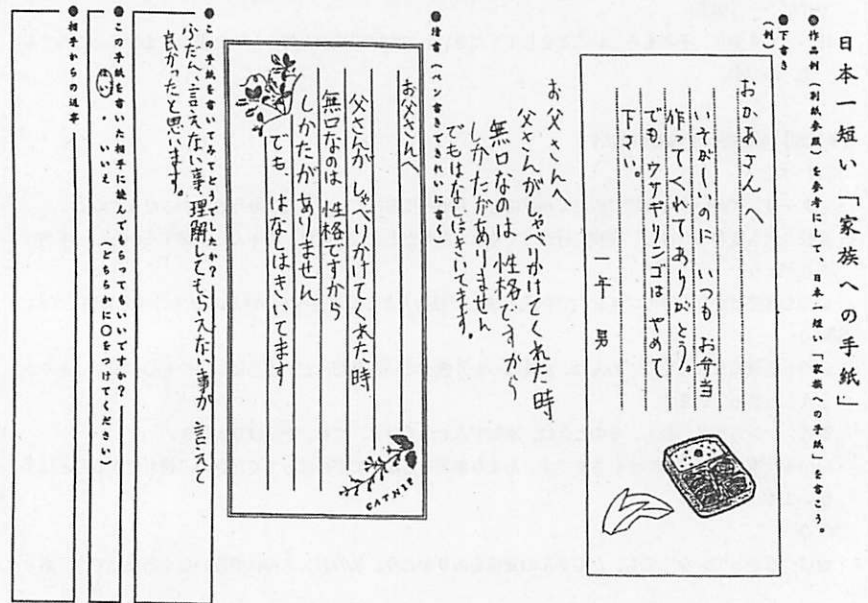 日本一短い「家族への手紙」
●作品例(別紙参照)を参考にして、日本一短い「家族への手紙」を書こう。
●下書き
(例)
おかあさんへ
いそがしいのに いつも お弁当
作ってくれてありがとう。
でも、ウサギリンゴは やめて
下さい。
一年 男
お父さんへ
父さんがしゃべりかけてくれた時、
無口なのは 性格ですから
しかたがありません
でもはなしはきいてます。
(ペン書きできれいに書く)
お父さんへ
父さんが しゃべりかけてくれた時
無口なのは 性格ですから
しかたが ありません
でも、はなしはきいてます
FATHER
●手紙を書いてみてどうですか?
ふだん、言えない事、理解してもらえない事が 言えて
良かったと思います。
●この手紙を書いた相手に読んでもらってもいいですか?
はい ・ いいえ (どちらかに○をつけてください)
●相手からの返事